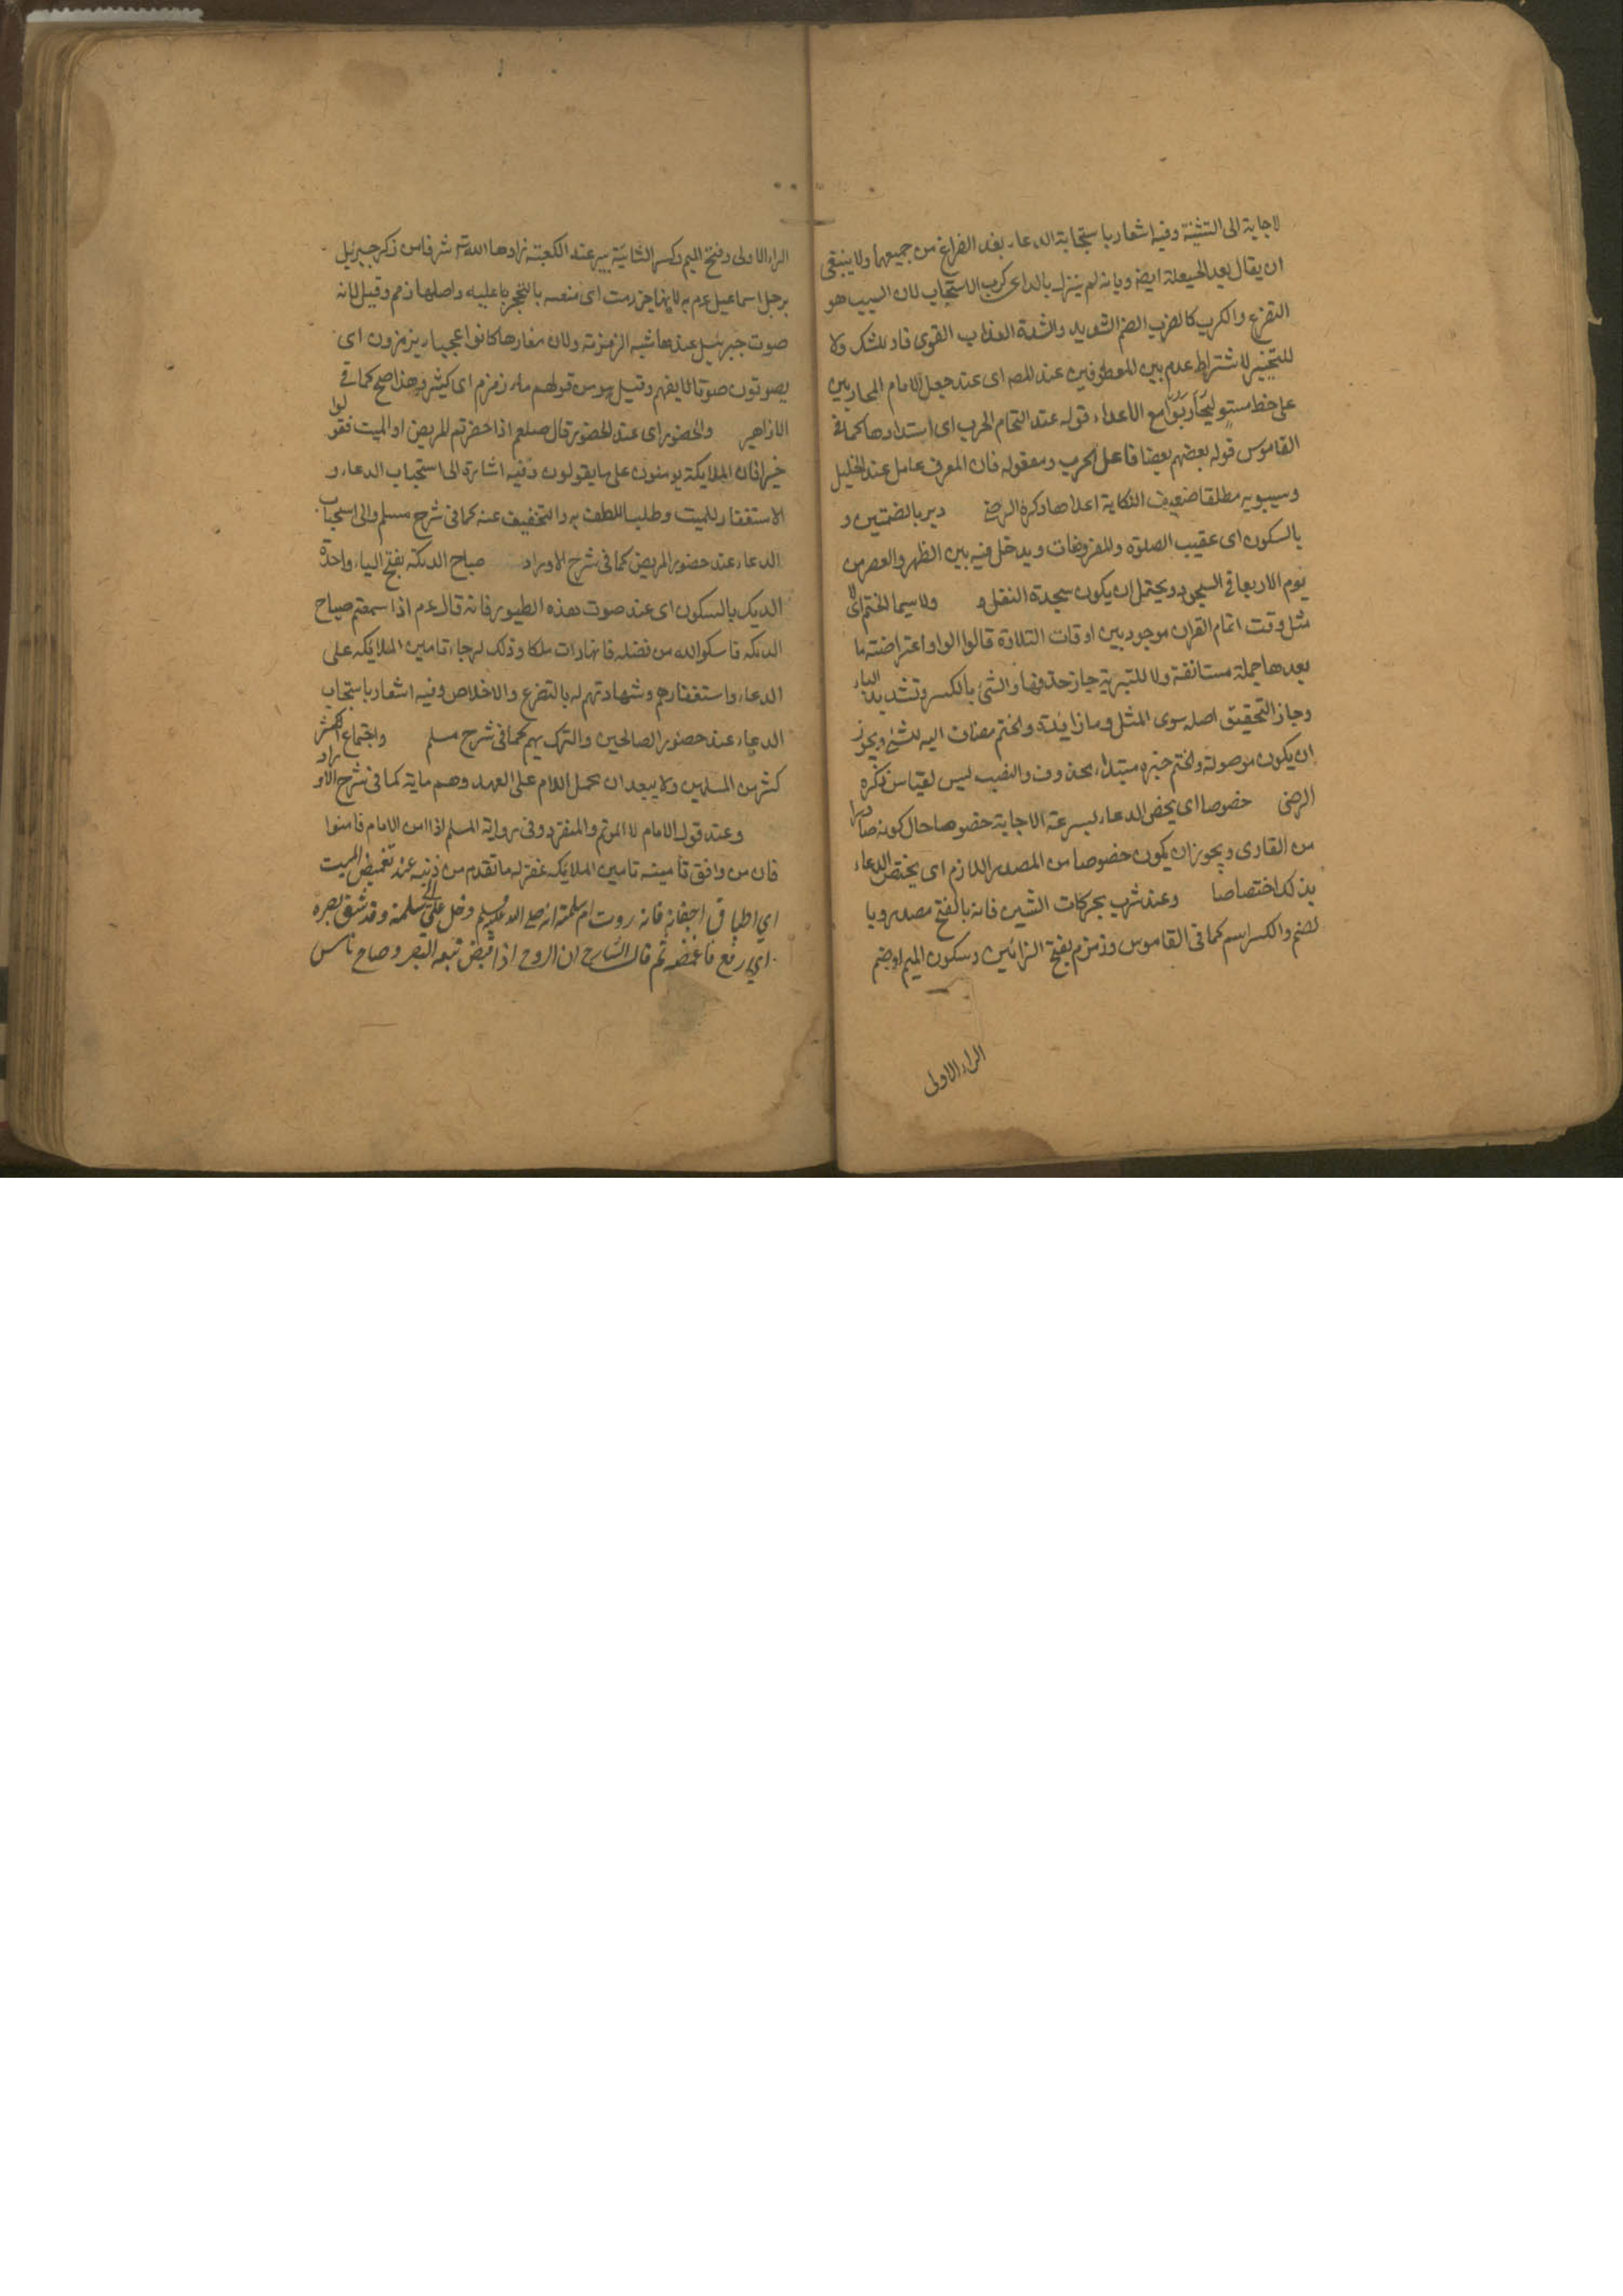 لاجابة الى التثنية وفيه اشعار باستجابة الدعاء بعد الفراغ من جميعها ولا ينبغى
ان يقال بعد الحيعلة ايضا وبانه لم ينزل بالداعى كرب الاستجاب لان السبب هو
التضرع والكرب كالضرب الضم الشديد والشدة العذاب القوى فاو للشك ولا
للتخيير لاشتراط عدم بين المعطوفين عند للصه اى عند جعل الامام المحاربين
على خط مستو ليحاربوا مع الاعداء قوله عند التحام الحرب اى ابتدادها كما فى
القاموس قوله بعضهم بعضا فاعل الحرب ومفعوله فان المعرف عامل عند الخليل
وسيبويه مطلقا ضعيف النكاية اعداه ذكره الرضى ودبر بالضمتين و
بالسكون اى عقيب الصلوة والمفروضات ويدخل فيه بين الظهر والعصر من
يوم الاربعا فى السجود ويحتمل ان يكون سجدة النفل و ولا سيما الختم اى لا
مثل وقت اتمام القران موجود بين اوقات التلاوة قالوا الواو اعتراضية ما
بعدها جملة مستانفة ولا للتبرية جاز حذفها والشئ بالكسر وتشديد الياء
وجاز التحقيق اصله سوى المثل وما زايدة والختم مضاف اليه للشئ ويجوز
ان يكون موصولة والختم خبره مبتداء محذوف والنصب ليس لقياس ذكره
الرضى خصوصا اى يخص الدعاء لسرعة الاجابة خصوصا حال كونه صادرا
من القارى ويجوز ان يكون خصوصا من المصدر اللازم اى يختص الدعاء
بذلك اختصاصا وعند شرب بحركات الشين فانه بالفتح مصدر وبا
لضم والكسر اسم كما فى القاموس وزمزم بفتح الزائين وسكون الميم او ضم
الراء الاولى
الراء الاولى وفتح الميم وكسر الثانية بير عند الكعبة زادها الله شرفا من ذكر جبرئيل
برجل اسماعيل عم به لانها حين زمت اى منعت بالتحجر باعليه واصلها زمم وقيل لانه
صوت جبرئيل عندها شبه الزمزمة ولان مغارها كانوا اعجميا يزمزمون اى
يصوتون صوتا لا يفهم وقيل من قولهم ماء زمزم اى كثير وهذا اصح كما فى
الازاهير والحضور اى عند الحضور قال صلعم اذا حضرتم المريض او الميت فقولوا
خيرا فان الملايكة يومنون على ما يقولون وفيه اشارة الى استحباب الدعاء و
الاستغفار للميت وطلب اللطف به والتخفيف عنه كما فى شرح مسلم والى استحباب
الدعاء عند حضور المريض كما فى شرح الاوراد صياح الديكة بفتح الياء واحدة
الديك بالسكون اى عند صوت هذه الطيور فانه قال عم اذا سمعتم صياح
الديكة فاسئلوا الله من فضله فانها رات ملكا وذلك لرجاء تامين الملايكة على
الدعاء واستغفارهم وشهادتهم له بالتضرع والاخلاص وفيه اشعار باستحباب
الدعاء عند حضور الصالحين والتبرك بهم كما فى شرح مسلم واجتماع اكثر
كثر من المسلمين ولا يبعد ان يحمل اللام على العهد وهم ماية كما فى شرح الاوراد
وعند قول الامام لا الموتم والمنفرد وفى رواية المسلم اذا امن الامام فامنوا
فان من وافق تامينه تامين الملايكة غفر له ما تقدم من ذنبه عند تغميض الميت
اي اطباق اجفانه فانه روت ام سلمة انه صلى الله عليه وسلم دخل على ابى سلمة وقد شق بصره
اي رفع فاغمضه ثم قال الشارح ان الروح اذا قبض تبعه البصر وصاح ناس